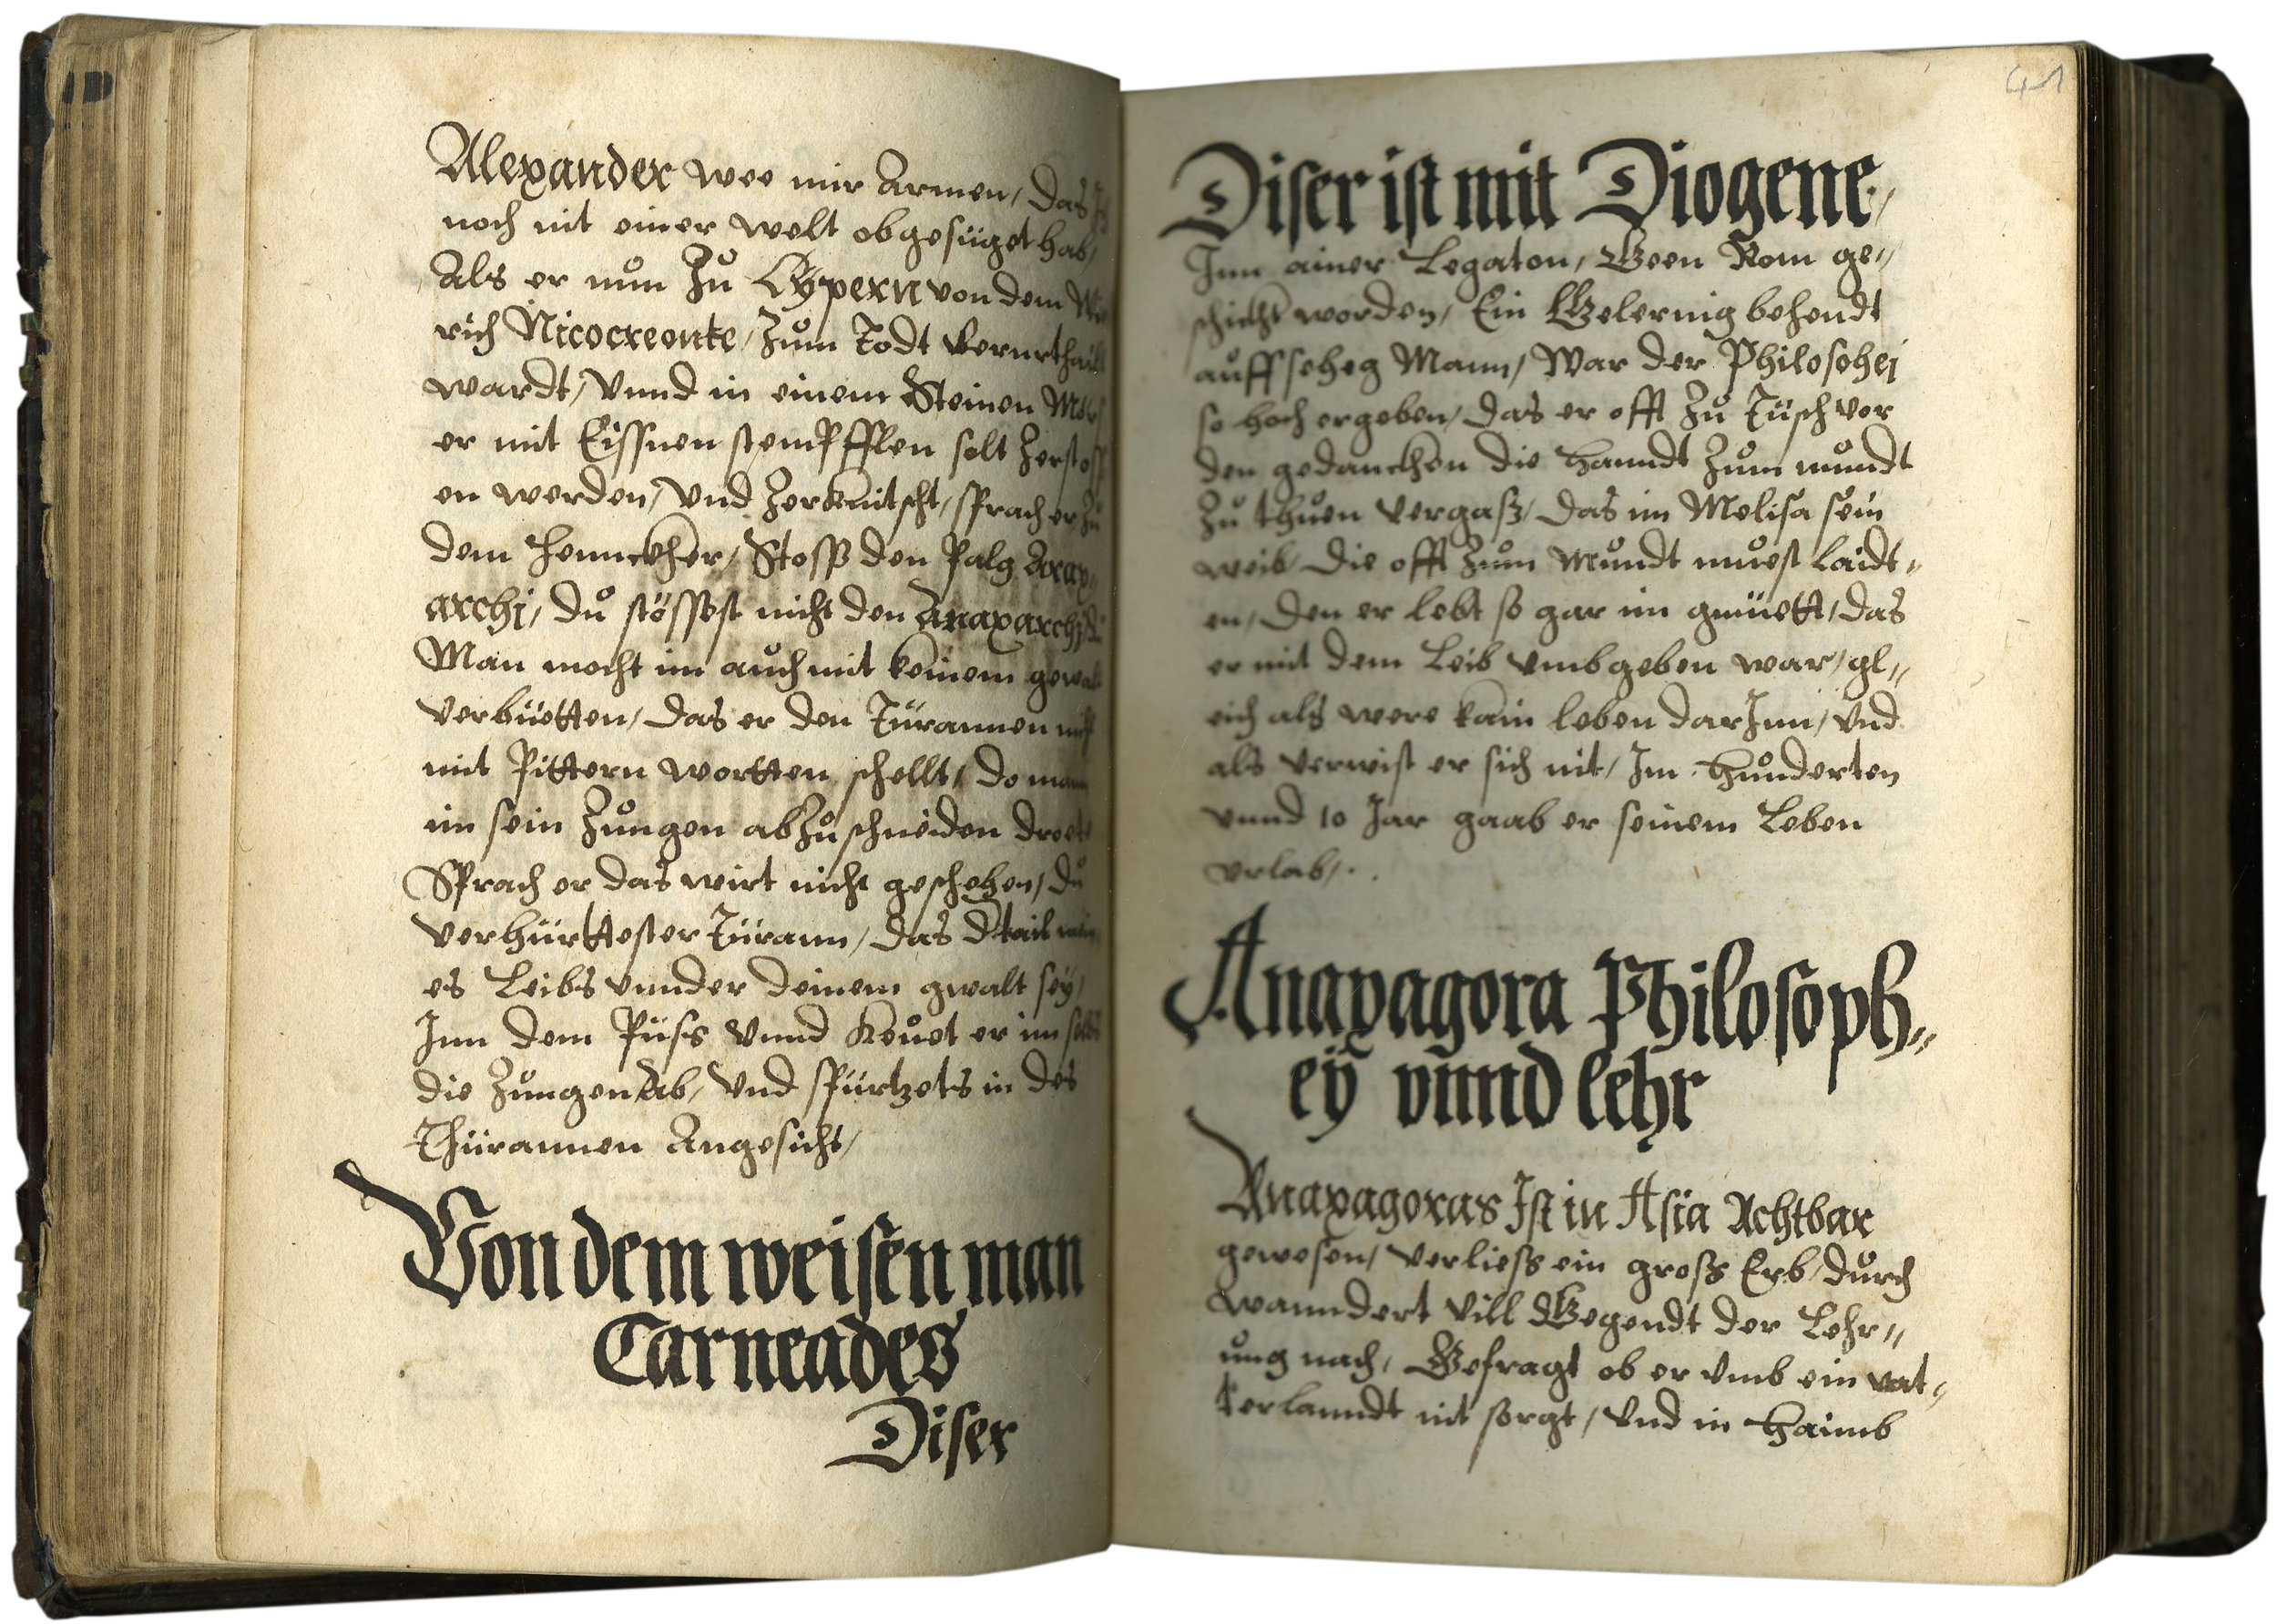 Alexander wee mir armen, das Ich
noch nit einer welt obgesüget hab,
Als er nun Zu Cÿpern von dem
rich Nicocreonte, Zum Todt verurthailt
wardt, vnnd in einem Steinen
er mit Eissnen stempfflen solt Zerstoss
en werden, vnd Zerknitscht, sprach er Zu
dem hennckher, Stoss den Palg Anax,,
archj, du stössest nicht den Anaxarchj
Man mocht im auch mit keinem gewalt
verbüetten, das er den Türannen nicht
mit Pittern wortten schellt, do man
im sein Zungen abZuschneiden droet
Sprach er das wirt nicht geschehen, du
verhürttester Türann, das d tail mein
es Leibs vnnder deinem gwalt seÿ,
Inn dem Püss vnnd Keuet er im selbs
die Zungen ab, vnd spürtzets in des
Thürannen Angesicht,
Von dem weisen man
Carneades
Diser
41
Diser ist mit Diogene,
Inn ainer Legaton, Geen Rom ge,,
schickht worden, Ein Gelernig behendt
auffseheg Mann, War der Philosohej
so hoch ergeben, das er offt Zu Tüsch vor
den gedanckhen die hanndt Zum mundt
Zu thuen vergasz, das im Melisa sein
weib, die offt Zum Mundt muest laidt,,
en, den er lebt so gar im gmüett, das
er mit dem Leib vmbgeben war, gl,,
eich als were kain leben darInn, vnd
als verwist er sich nit, Im hunderten
vnnd 10 Jar gaab er seinem Leben
vrlab,..
Anaxagora Philosoph,,
eÿ vnnd lehr
Anaxagoras Ist in Asia Achtbar
gewesen, verliess ein gross Erb, durch
wanndert vill Gegendt der Lehr,,
ung nach, Gefragt ob er vmb ein vat,,
terlanndt nit sorgt, vnd in haimb